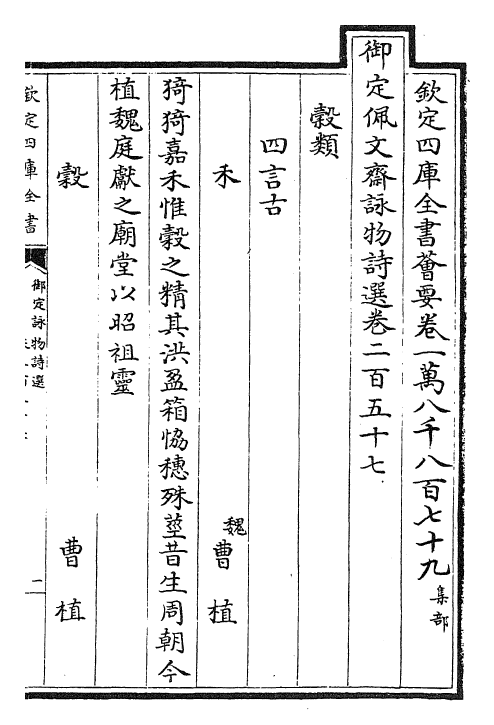 欽定四庫全書薈要卷一萬八千八百七十九 集部
御定佩文齋詠物詩選卷二百五十七
穀類
四言古
禾 魏 曹植
猗猗嘉禾惟穀之精其洪盈箱恊穗殊莖昔生周朝今
植魏庭獻之廟堂以昭祖靈
穀 曹植
欽定四庫全書
御定詠物詩選